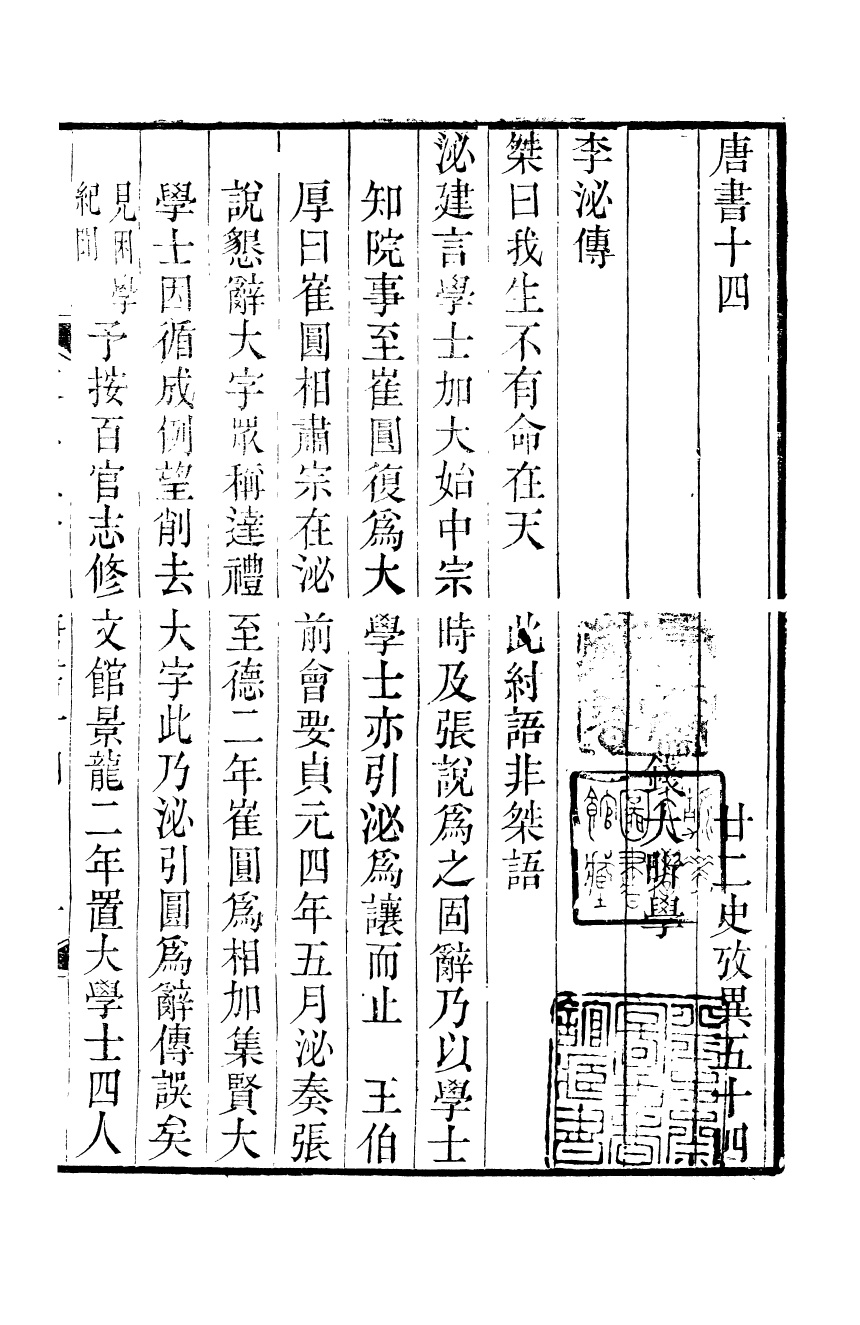 唐書十四　廿二史攷異五十四
錢大昕學
李泌傳
桀曰我生不有命在天　此紂語非桀語
泌建言學士加大始中宗時及張說爲之固辭乃以學士
知院事至崔圓復爲大學士亦引泌爲讓而止　王伯
厚曰崔圓相肅宗在泌前會要貞元四年五月泌奏張
說懇辭大字眾稱達禮至德二年崔圓爲相加集賢大
學士因循成例望削去大字此乃泌引圓爲辭傳誤矣
見困學
紀聞
予按百官志修文館景龍二年置大學士四人